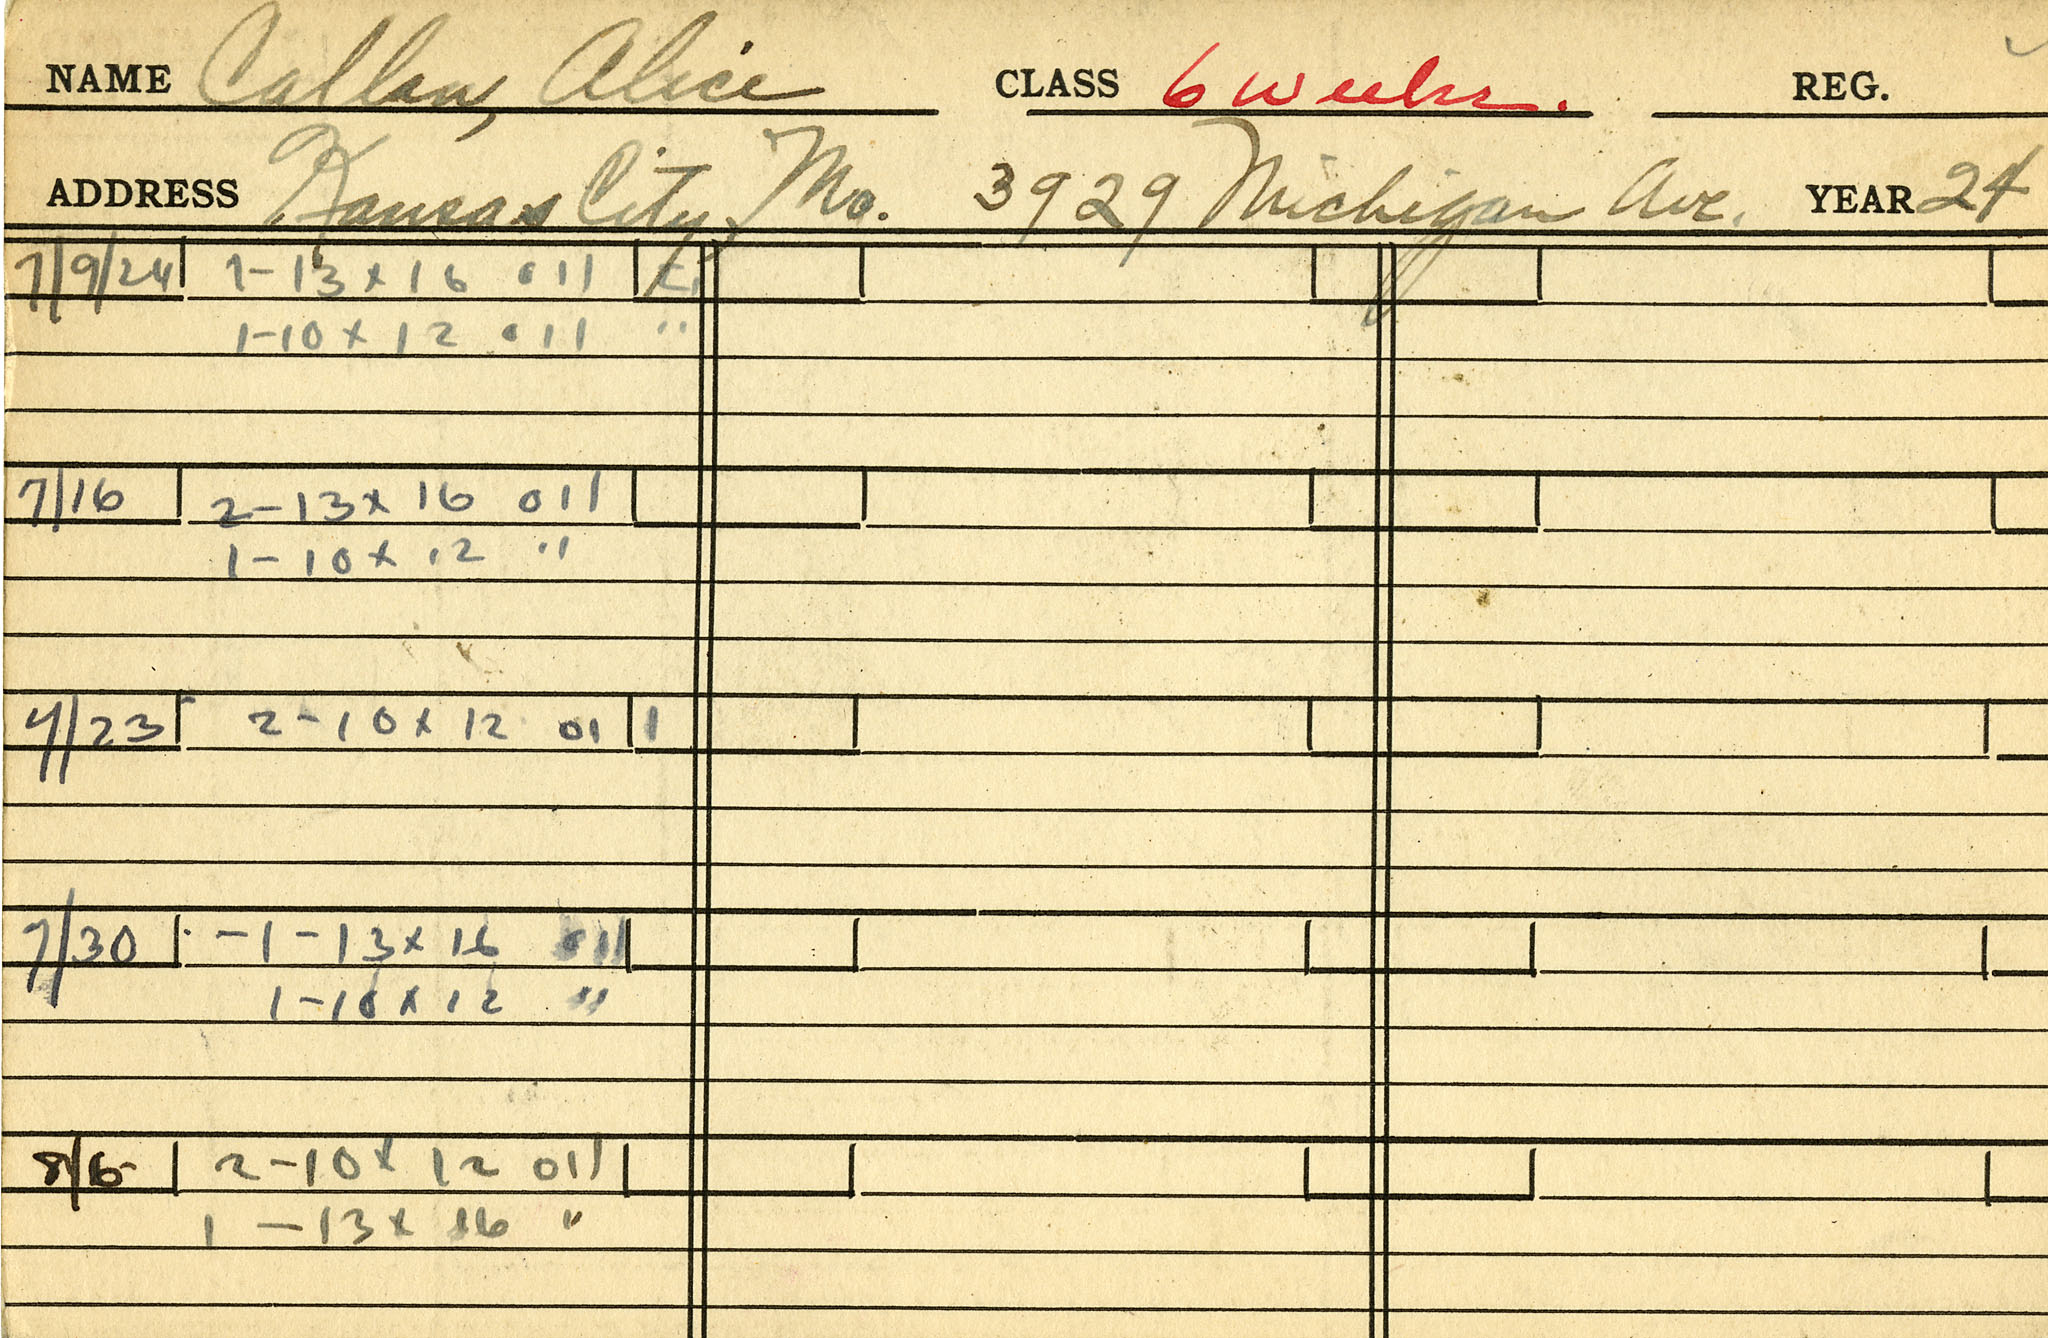 NAME Callan, Alice CLASS 6 weeks. REG.
ADDRESS Kansas City, Mo. 3929 Michigan Ave. YEAR 24
7/9/24 1-13 x 16 oil
1-10 x 12 oil "
7/16 2-13 x 16 oil
1-10 x 12 "
7/23 2-10 x 12 oil
7/30 -1-13 x 16 oil
1-10 x 12 "
8/6 2-10 x 12 oil
1-13 x 16 "